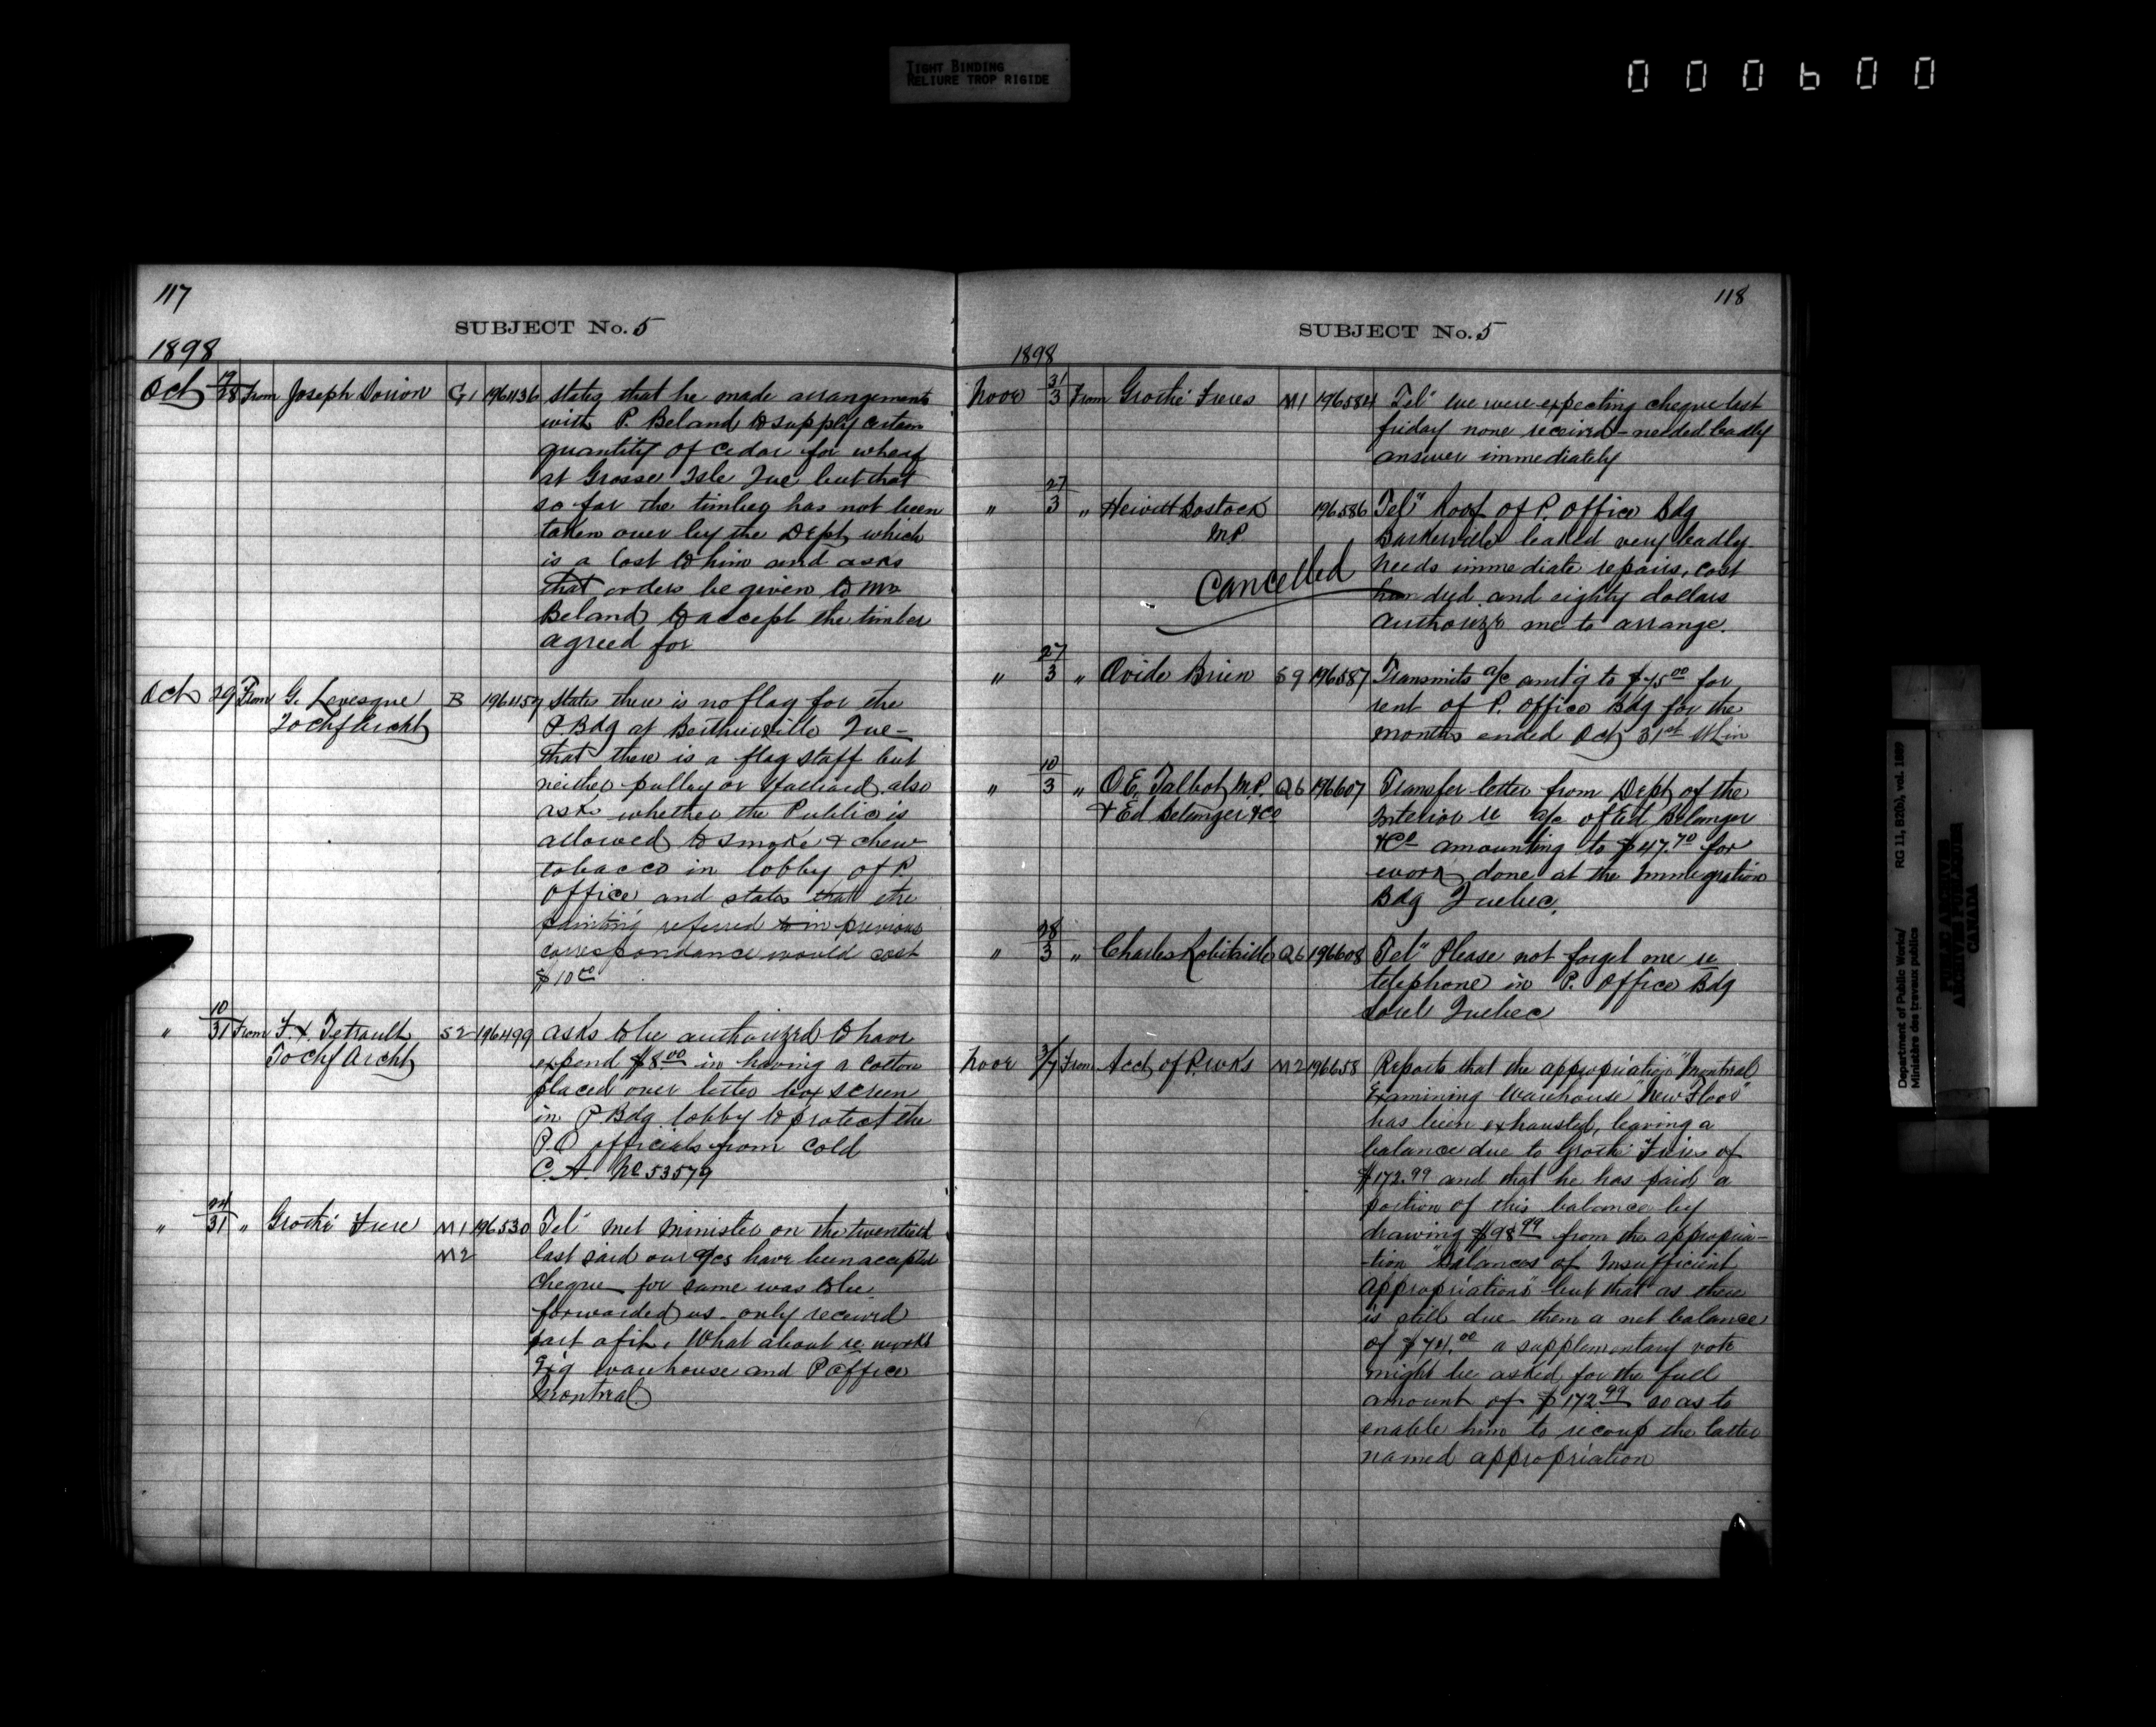 TIGHT BINDING
RELIURE TROP RIGIDE
000600
117
SUBJECT No. 5
1898
Oct 19/28 From Joseph Dorion G1 196436 States that he made arrangements
with P. Beland to supply certain
quantity of Cedar for wharf
at Grosse Isle Que, but that
so far the timber has not been
taken over by the Dept, which
is a lost to him and asks
that orders be given to Mr
Beland to accept the timber
agreed for
Oct 29 From G. Levesque B 196459 States there is no flag for the
To Chf Archt P Bdg at Berthierville Que-
that there is a flag staff but
neither pulley or Halliard, also
ask whether the Public is
allowed to smoke & chew
tobacco in lobby of P.
Office and states that the
painting referred to in previous
correspondance would cost
$10.00
" 10/31 From F.X. Tetrault S2 196499 asks to be authorized to have
To Chf Archt expend $8.00 in having a cotton
placed over letter box screen
in P Bdg lobby to protect the
P.O officials from cold
C.A. No 53579
" 24/31 " Grothé Frere M1 196530 Tel" met Minister on the twentieth
M2 last said our a/cs have been accepted
cheque for same was to be
forwarded us. only received
part of it. What about re works
Exg warehouse and P Office
Montreal
118
SUBJECT No. 5
1898
Novr 31/3 From Grothé Freres M1 196584 Tel" we were expecting cheque last
friday none received - needed badly
answer immediately
" 27/3 " Hewitt Bostock 196586 Tel" Roof of P. Office Bdg
M.P. Barkerville leaked very badly.
Cancelled needs immediate repairs, cost
hundred and eighty dollars
Authorize me to arrange.
" 27/3 " Ovide Brien S9 196587 Transmits a/c amt'g to $75.00 for
rent of P. Office Bdg for the
months ended Oct 31st
" 10/3 " O.E. Talbot M.P. Q6 196607 Transfer letter from Dept of the
& Ed Belanger & Co Interior re a/c of Ed Belanger
& Co amounting to $47.70 for
work done at the Immigration
Bdg Quebec.
" 28/3 " Charles Robitaille Q6 196608 Tel" Please not forget me re
telephone in P. Office Bdg
Sorel Quebec
Novr 3/7 From Acct of P. Wks M2 196658 Reports that the appropriation "Montreal
Examining Warehouse "New Floor"
has been exhausted, leaving a
balance due to Grothé Freres of
$172.99 and that he has paid a
portion of this balance by
drawing $98.99 from the appropria-
-tion "Balances of Insufficient
Appropriations" but that as there
is still due them a net balance
of $74.00 a supplementary vote
might be asked for the full
amount of $172.99 so as to
enable him to recoup the latter
named appropriation
Department of Public Works/ RG 11, B2(b), vol. 1889
Ministère des travaux publics
PUBLIC ARCHIVES
ARCHIVES PUBLIQUES
CANADA